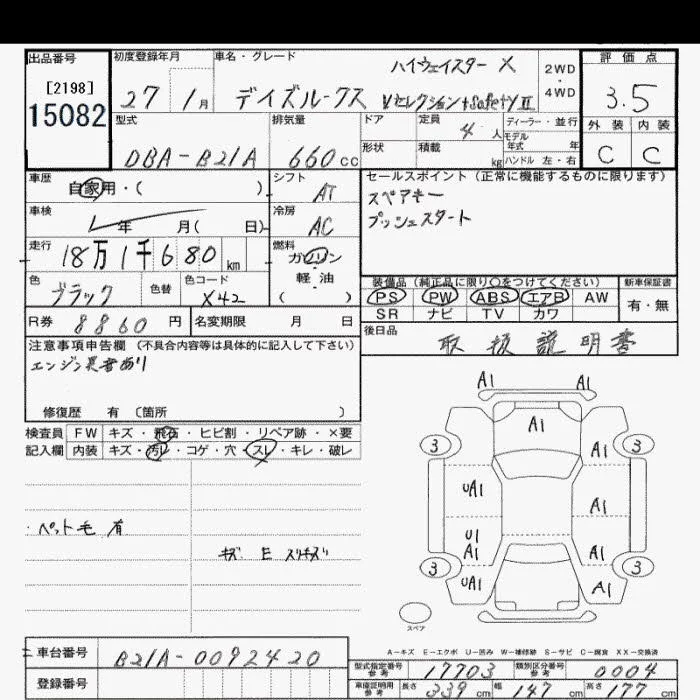 出品番号
[2198]
15082
初度登録年月
27 1月
車名・グレード
ハイウェイスター X
デイズルークス Vセレクション+SafetyⅡ
2WD
・
4WD
評価点
3.5
外装 内装
C C
型式
DBA-B21A
排気量
660cc
ドア
定員
4人
形状
積載
kg
ディーラー・並行
モデル
年式 年
ハンドル 左・右
車歴
自家用・( )
シフト
AT
車検
年 月( 日)
冷房
AC
走行
18万1千680km
燃料
ガソリン
軽油
( )
色
ブラック
色替
色コード
X42
R券 8860円
名変期限 月 日
セールスポイント(正常に機能するものに限ります)
スペアキー
プッシュスタート
装備品(純正品に限り○をつけてください)
PS PW ABS エアB AW
SR ナビ TV カワ
新車保証書
有・無
後日品
取扱説明書
注意事項申告欄(不具合内容等は具体的に記入して下さい)
エンジン異音あり
修復歴 有(箇所 )
検査員
記入欄
FW キズ・飛石・ヒビ割・リペア跡・×要
内装 キズ・汚レ・コゲ・穴・スレ・キレ・破レ
・ペット毛 有
キズ E スリキズ
A1 A1
A1
3 3
A1
UA1
A1
U1
A1
A1
3 3
UA1
A1
スペア
A-キズ E-エクボ U-凹み W-補修跡 S-サビ C-腐食 XX-交換済
車台番号
B21A-0092420
登録番号
型式指定番号
参考
17703
類別区分番号
参考
0004
車庫証明用
参考
長さ 339cm 幅 147cm 高さ 177cm